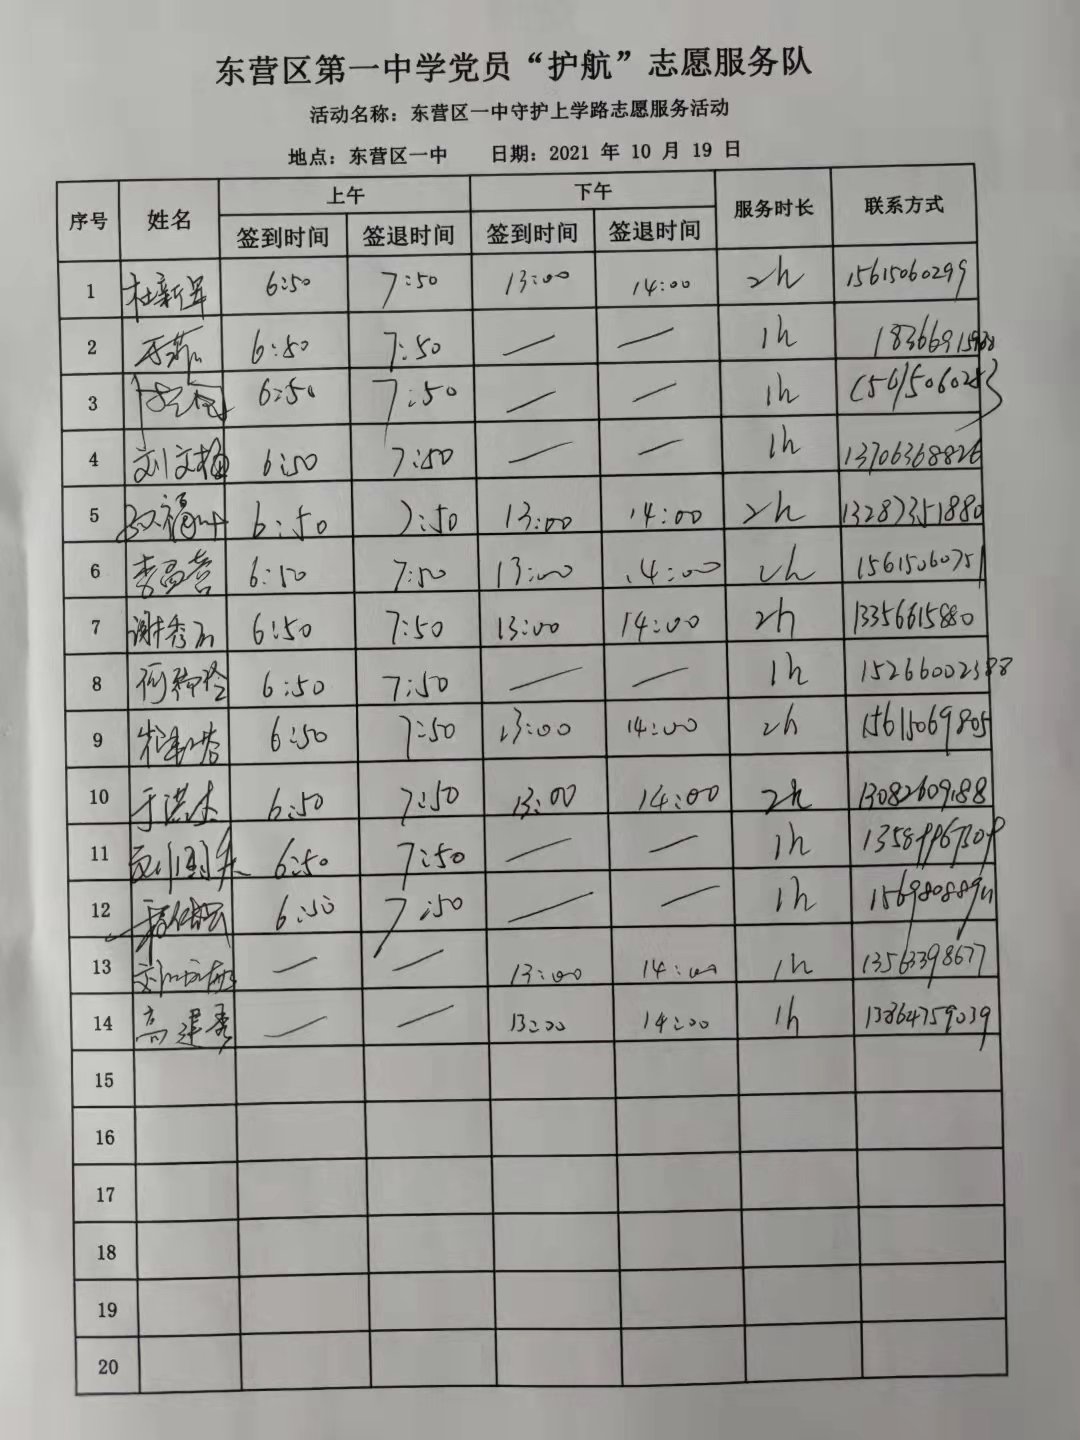 东营区第一中学党员“护航”志愿服务队
活动名称：东营区一中守护上学路志愿服务活动
地点：东营区一中 日期：2021 年 10 月 19 日
序号 姓名 上午 下午 服务时长 联系方式
签到时间 签退时间 签到时间 签退时间
1 杜新军 6:50 7:50 13:00 14:00 2h 15615060299
2 6:50 7:50 — — 1h
3 6:50 7:50 — — 1h
4 刘文梅 6:50 7:50 — — 1h 13706368826
5 6:50 7:50 13:00 14:00 2h 13287351880
6 李昌营 6:50 7:50 13:00 14:00 2h 15615060751
7 谢秀 6:50 7:50 13:00 14:00 2h 13356615880
8 6:50 7:50 — — 1h 15266002388
9 6:50 7:50 13:00 14:00 2h 15615069805
10 于洪 6:50 7:50 13:00 14:00 2h 13082609188
11 6:50 7:50 — — 1h
12 6:50 7:50 — — 1h
13 — — 13:00 14:00 1h 13563398677
14 高建秀 — — 13:00 14:00 1h 13864759039
15
16
17
18
19
20